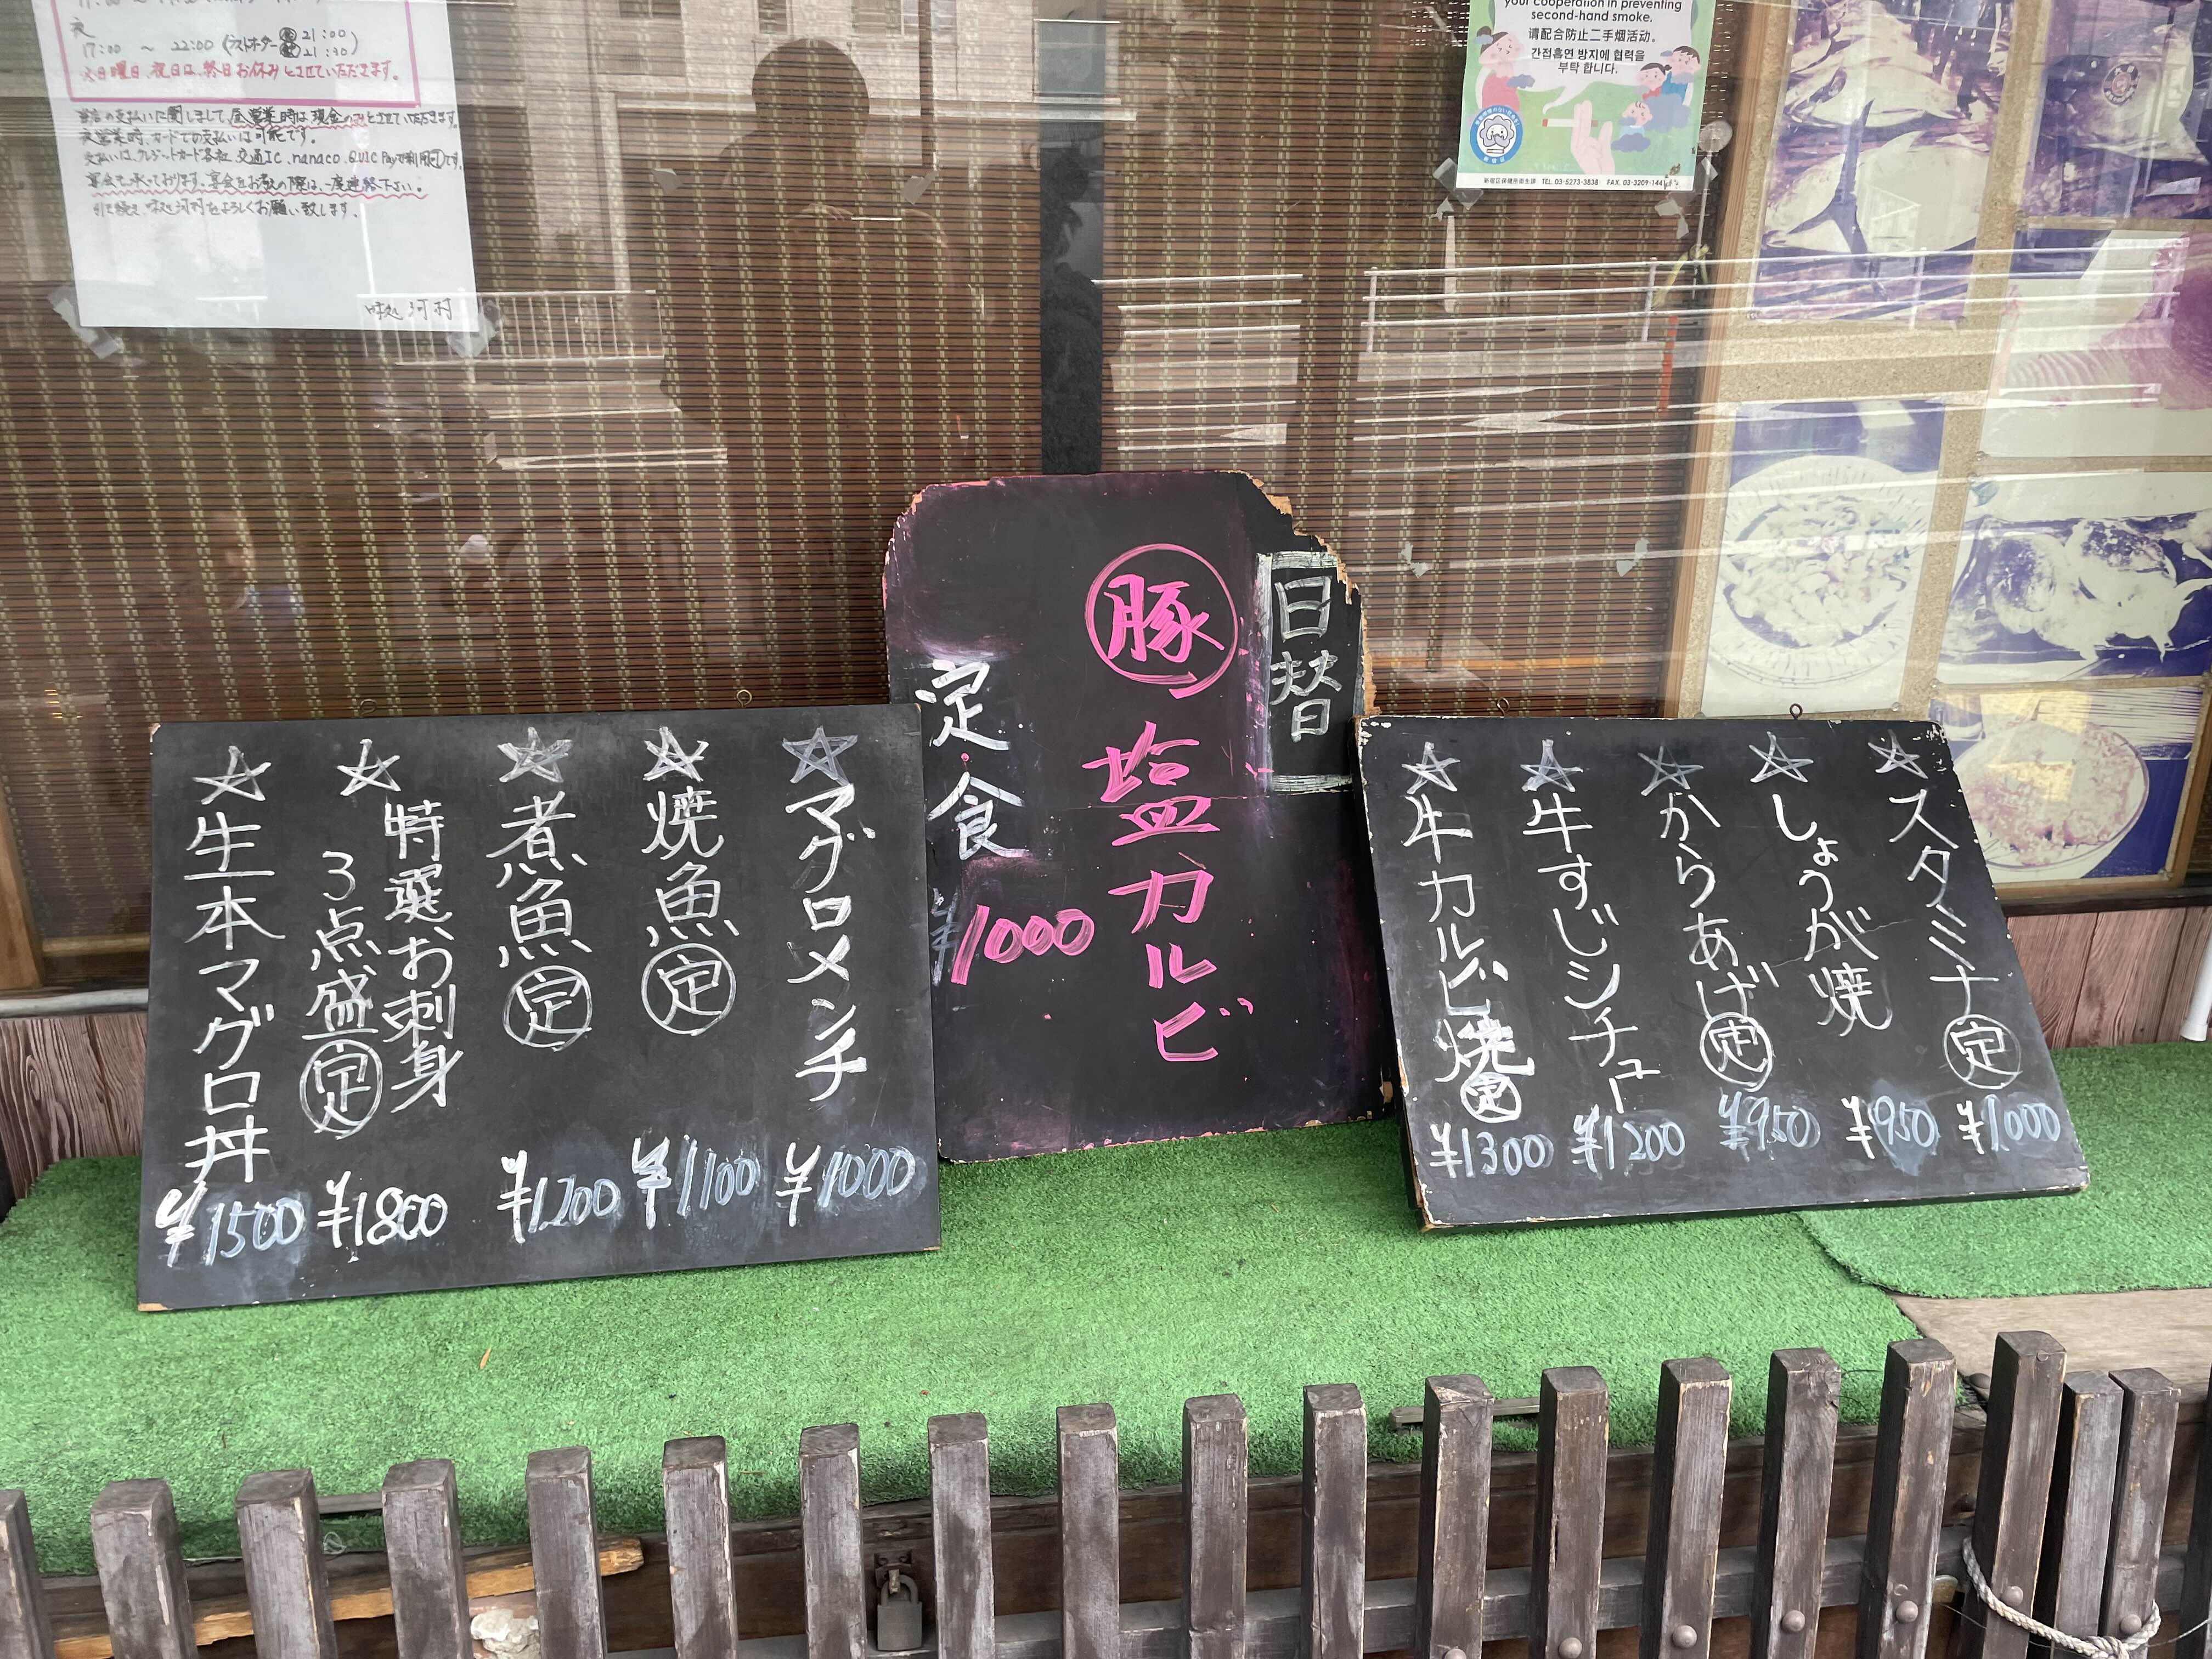 夜
17:00 ～ 22:00 (ラストオーダー 21:00
21:30)
日曜日、祝日は、終日お休みとさせていただきます。
当店の支払いに関しまして、昼営業時は現金のみとさせていただきます。
夜営業時、カードでの支払いは可能です。
支払いは、クレジットカード各社、交通IC、nanaco、QUIC Payで利用可です。
宴会も承っております。宴会をお考えの際は、一度連絡下さい。
引き続き、味処河村をよろしくお願い致します。
味処 河村
your cooperation in preventing
second-hand smoke.
请配合防止二手烟活动。
간접흡연 방지에 협력을
부탁 합니다.
新宿区保健所衛生課 TEL. 03-5273-3838 FAX. 03-3209-1441
日替
豚 塩カルビ
定食
¥1000
☆マグロメンチ ¥1000
☆焼魚定 ¥1100
☆煮魚定 ¥1200
☆特選お刺身
3点盛定 ¥1800
☆生本マグロ丼 ¥1500
☆スタミナ定 ¥1000
☆しょうが焼 ¥950
☆からあげ定 ¥950
☆牛すじシチュー ¥1200
☆牛カルビ焼定 ¥1300